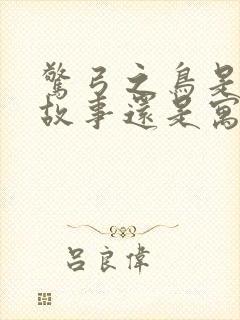 驚弓之鳥是
故事還是寓
呂良偉